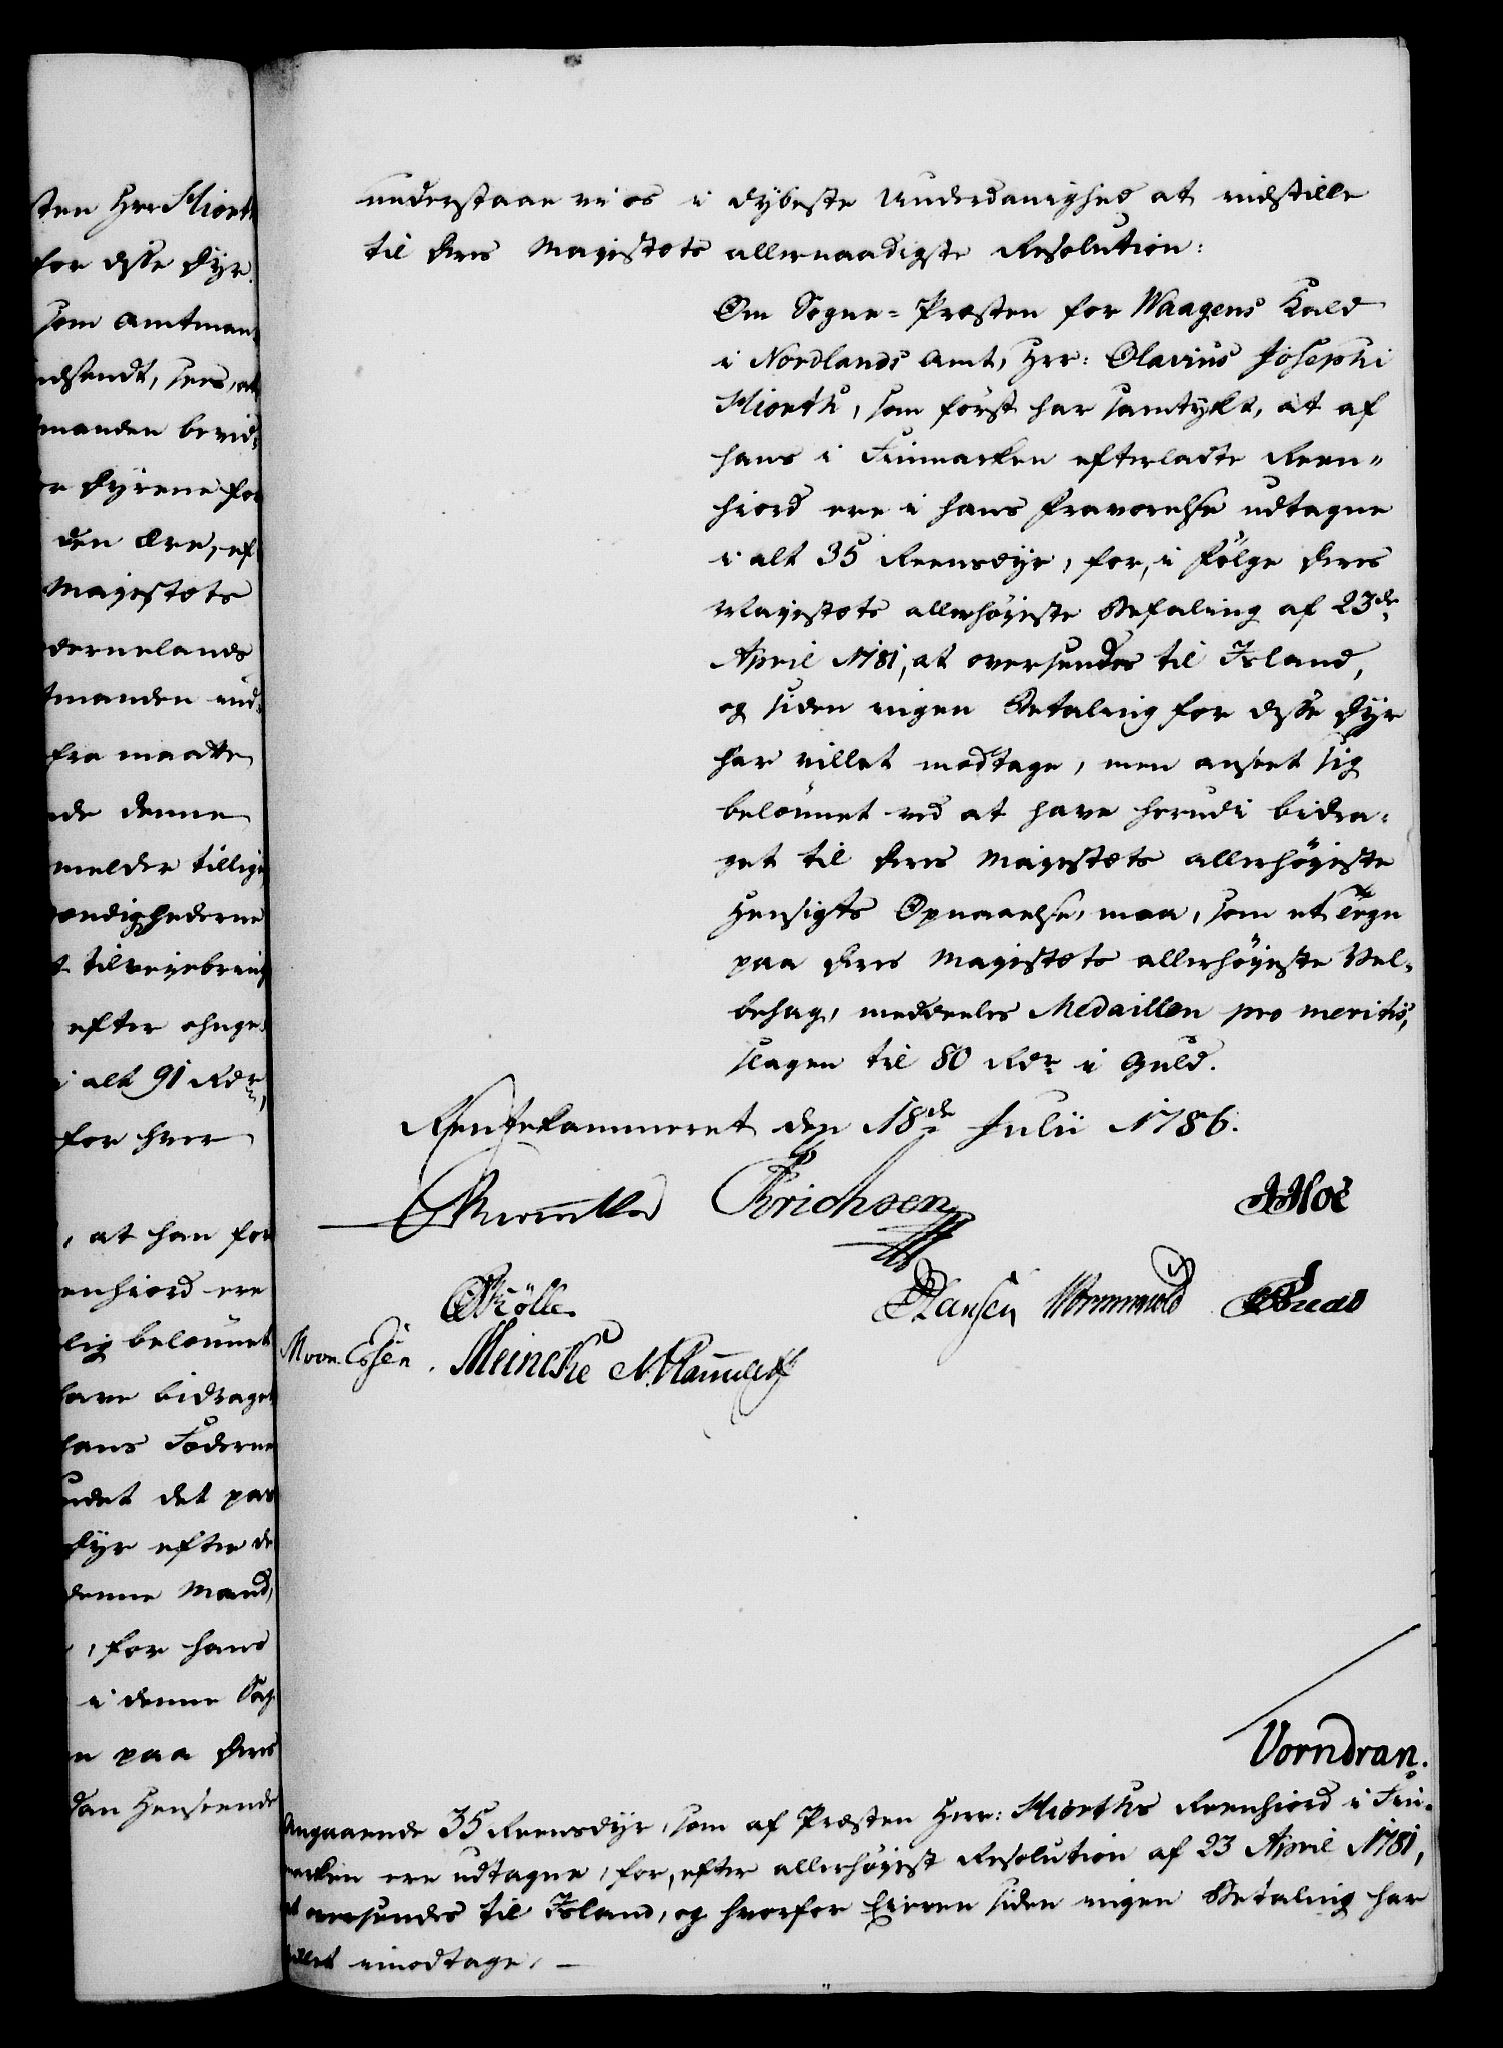 sten Hrr Hiorth
for disse Dyr
som Amtman-
indsendt, sees, at
manden bevid-
Dyrene for
den Ere, ef-
Majestæts
dernelands
tmanden ind-
fra maatte
denne
melder tillige
ændighederne
tilveyebring
efter
i alt 91 Rdr,
for hver
, at han for
enhiord ere
lig belönnet
have bidraget
hans
det paa
Dyr efter de
denne Mand,
, for hans
i denne Sag
paa Deres
Henseende
understaae vi os i dybeste Underdanighed at indstille
til Deres Majestæts allernaadigste Resolution:
Om Sogne-Præsten for Waagens Kald
i Nordlands Amt, Hrr: Olavius Josephi
Hiorth, som först har samtykt, at af
hans i Finmarken efterladte Reen-
hiord ere i hans Fraværelse udtagne
i alt 35 Reensdyr, for, i Fölge Deres
Majestæts allerhöyeste Befaling af 23de
April 1781, at oversendes til Island,
og siden ingen Betaling for disse Dyr
har villet modtage, men anseet sig
belönnet ved at have herudi bidra-
get til Deres Majestæts allerhöyeste
Hensigts Opnaaelse, maa, som et Tegn
paa Deres Majestæts allerhöyeste Vel-
behag, meddeeles Medaillen pro meritis,
slagen til 80 Rdr i Guld.
Rentekammeret den 18de Julii 1786.
Erichsen
Hansen Wormskiold
Meincke
Vorndran.
Angaaende 35 Reensdyr, som af Præsten Hrr: Hiorths Reenhiord i Fin-
marken ere udtagne, for, efter allerhöyest Resolution af 23 April 1781,
at oversendes til Island, og hvorfor Eieren siden ingen Betaling har
villet imodtage. —